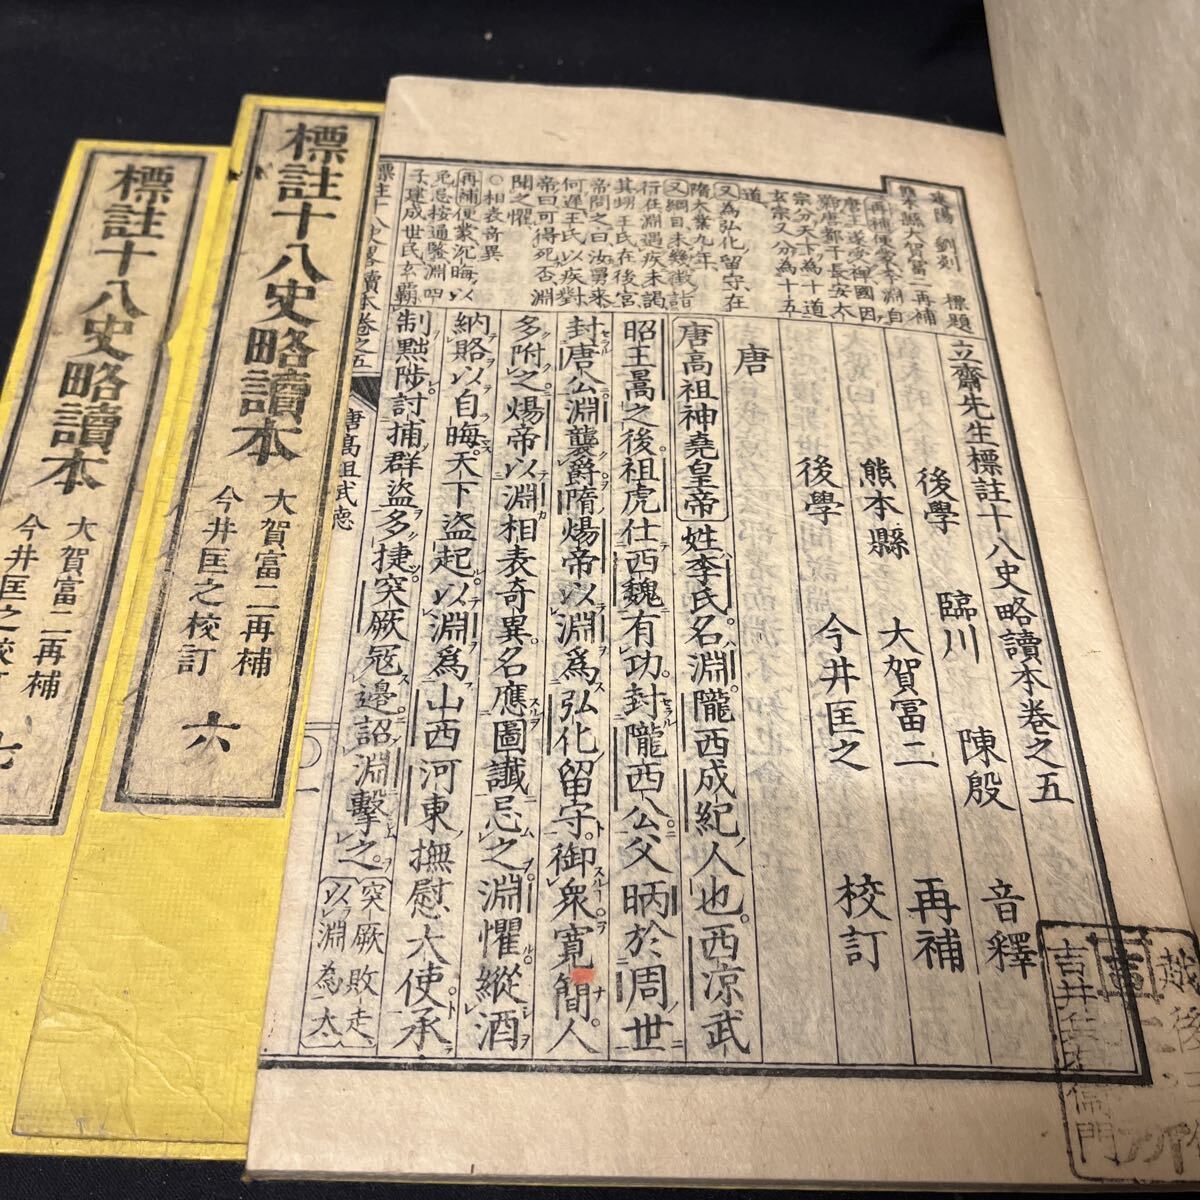 立齋先生標註十八史略讀本卷之五
後學 臨川 陳殷 音釋
熊本縣 大賀富二 再補
後學 今井匡之 校訂
唐
唐高祖神堯皇帝姓李氏名淵隴西成紀人也西涼武
昭王暠之後祖虎仕西魏有功封隴西公父昞於周世
封唐公淵襲爵隋煬帝以淵爲弘化留守御衆寬簡人
多附之煬帝以淵相表奇異名應圖讖忌之淵懼縱酒
納賂以自晦天下盜起以淵爲山西河東撫慰大使承
制黜陟討捕群盜多捷突厥寇邊詔淵擊之
突厥敗走
以淵為太
建陽 劉剡 標題
熊本縣大賀富二再補
再補便蒙李淵自
唐王遂受禪國因
號唐都于長安太
宗分天下為十道
玄宗又分為十五
道
又為弘化留守在
隋大業九年
又綱目未幾徵詣
行在淵遇疾未謁
其甥王氏在後宮
帝問之曰汝舅來
何遲王氏以疾對
帝曰可得死否淵
聞之懼
〇相表奇異
再補便蒙沉晦以
免忌按通鑒淵四
子建成世民玄霸
標註十八史略讀本卷之五
唐高祖武德
〇一
標註十八史略讀本
大賀富二再補
今井匡之校訂
六
標註十八史略讀本
大賀富二再補
今井匡之校訂
七
越後
吉井
衛門